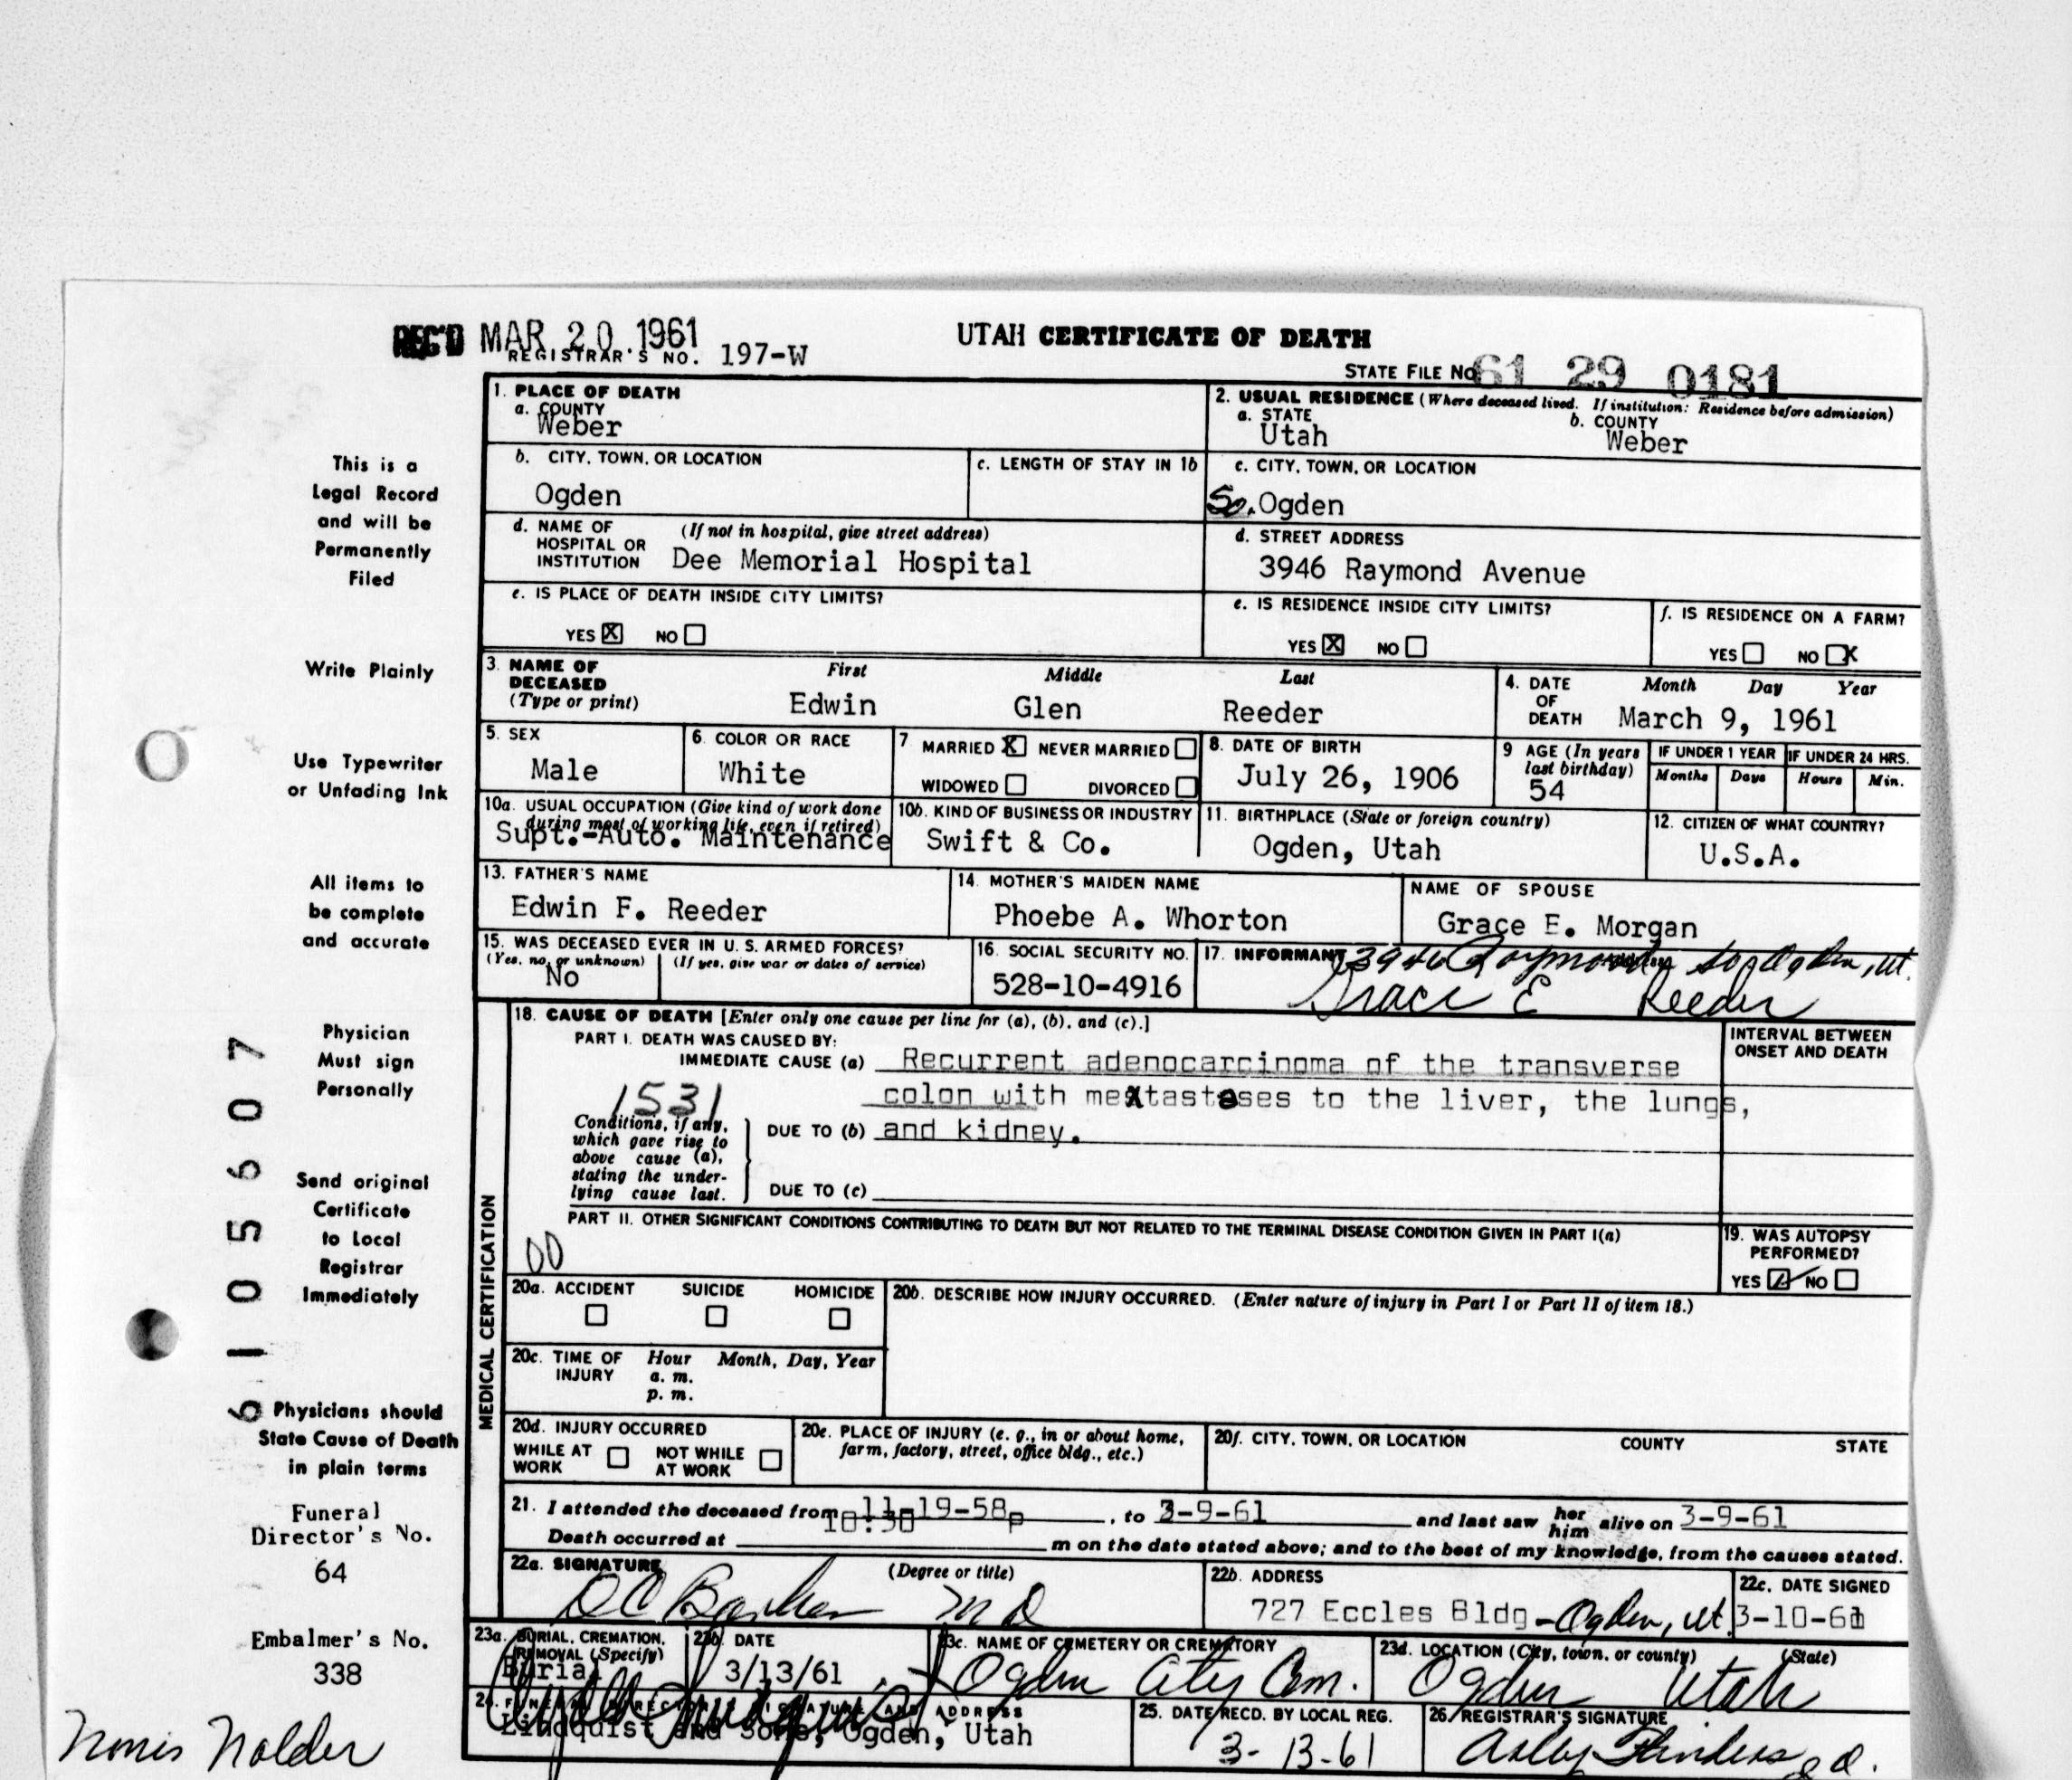 REC'D MAR 20 1961
REGISTRAR'S NO. 197-W
UTAH CERTIFICATE OF DEATH
STATE FILE No 61 29 0181
1. PLACE OF DEATH
a. COUNTY
Weber
2. USUAL RESIDENCE (Where deceased lived. If institution: Residence before admission)
a. STATE
Utah
b. COUNTY
Weber
b. CITY, TOWN, OR LOCATION
Ogden
c. LENGTH OF STAY IN 1b
c. CITY, TOWN, OR LOCATION
So. Ogden
d. NAME OF HOSPITAL OR INSTITUTION (If not in hospital, give street address)
Dee Memorial Hospital
d. STREET ADDRESS
3946 Raymond Avenue
e. IS PLACE OF DEATH INSIDE CITY LIMITS?
YES X NO
e. IS RESIDENCE INSIDE CITY LIMITS?
YES X NO
f. IS RESIDENCE ON A FARM?
YES NO X
3. NAME OF DECEASED (Type or print)
First Middle Last
Edwin Glen Reeder
4. DATE OF DEATH Month Day Year
March 9, 1961
5. SEX
Male
6. COLOR OR RACE
White
7 MARRIED X NEVER MARRIED
WIDOWED DIVORCED
8. DATE OF BIRTH
July 26, 1906
9 AGE (In years last birthday)
54
IF UNDER 1 YEAR
Months Days
IF UNDER 24 HRS.
Hours Min.
10a. USUAL OCCUPATION (Give kind of work done during most of working life, even if retired)
Supt.-Auto. Maintenance
10b. KIND OF BUSINESS OR INDUSTRY
Swift & Co.
11. BIRTHPLACE (State or foreign country)
Ogden, Utah
12. CITIZEN OF WHAT COUNTRY?
U.S.A.
13. FATHER'S NAME
Edwin F. Reeder
14. MOTHER'S MAIDEN NAME
Phoebe A. Whorton
NAME OF SPOUSE
Grace E. Morgan
15. WAS DECEASED EVER IN U. S. ARMED FORCES?
(Yes, no, or unknown) (If yes, give war or dates of service)
No
16. SOCIAL SECURITY NO.
528-10-4916
17. INFORMANT 3946 Raymond So Ogden, Ut.
Grace E Reeder
18. CAUSE OF DEATH [Enter only one cause per line for (a), (b), and (c).]
PART I. DEATH WAS CAUSED BY:
IMMEDIATE CAUSE (a) Recurrent adenocarcinoma of the transverse
colon with mextastases to the liver, the lungs,
1531
Conditions, if any, which gave rise to above cause (a), stating the under-lying cause last.
DUE TO (b) and kidney.
DUE TO (c)
INTERVAL BETWEEN ONSET AND DEATH
PART II. OTHER SIGNIFICANT CONDITIONS CONTRIBUTING TO DEATH BUT NOT RELATED TO THE TERMINAL DISEASE CONDITION GIVEN IN PART I(a)
00
19. WAS AUTOPSY PERFORMED?
YES NO
20a. ACCIDENT SUICIDE HOMICIDE
20b. DESCRIBE HOW INJURY OCCURRED. (Enter nature of injury in Part I or Part II of item 18.)
20c. TIME OF INJURY Hour Month, Day, Year
a. m.
p. m.
20d. INJURY OCCURRED
WHILE AT WORK NOT WHILE AT WORK
20e. PLACE OF INJURY (e. g., in or about home, farm, factory, street, office bldg., etc.)
20f. CITY, TOWN, OR LOCATION COUNTY STATE
MEDICAL CERTIFICATION
21. I attended the deceased from 11-19-58, to 3-9-61 and last saw her him alive on 3-9-61
10:30 p
Death occurred at m on the date stated above; and to the best of my knowledge, from the causes stated.
22a. SIGNATURE (Degree or title)
DC Barker M D
22b. ADDRESS
727 Eccles Bldg - Ogden, Ut.
22c. DATE SIGNED
3-10-61
23a. BURIAL, CREMATION, REMOVAL (Specify)
Burial
23b. DATE
3/13/61
23c. NAME OF CEMETERY OR CREMATORY
Ogden City Cem.
23d. LOCATION (City, town, or county) (State)
Ogden Utah
24. FUNERAL DIRECTOR'S SIGNATURE AND ADDRESS
Lindquist and Sons, Ogden, Utah
25. DATE RECD. BY LOCAL REG.
3-13-61
26. REGISTRAR'S SIGNATURE
This is a
Legal Record
and will be
Permanently
Filed
Write Plainly
Use Typewriter
or Unfading Ink
All items to
be complete
and accurate
Physician
Must sign
Personally
Send original
Certificate
to Local
Registrar
Immediately
Physicians should
State Cause of Death
in plain terms
61 105607
Funeral
Director's No.
64
Embalmer's No.
338